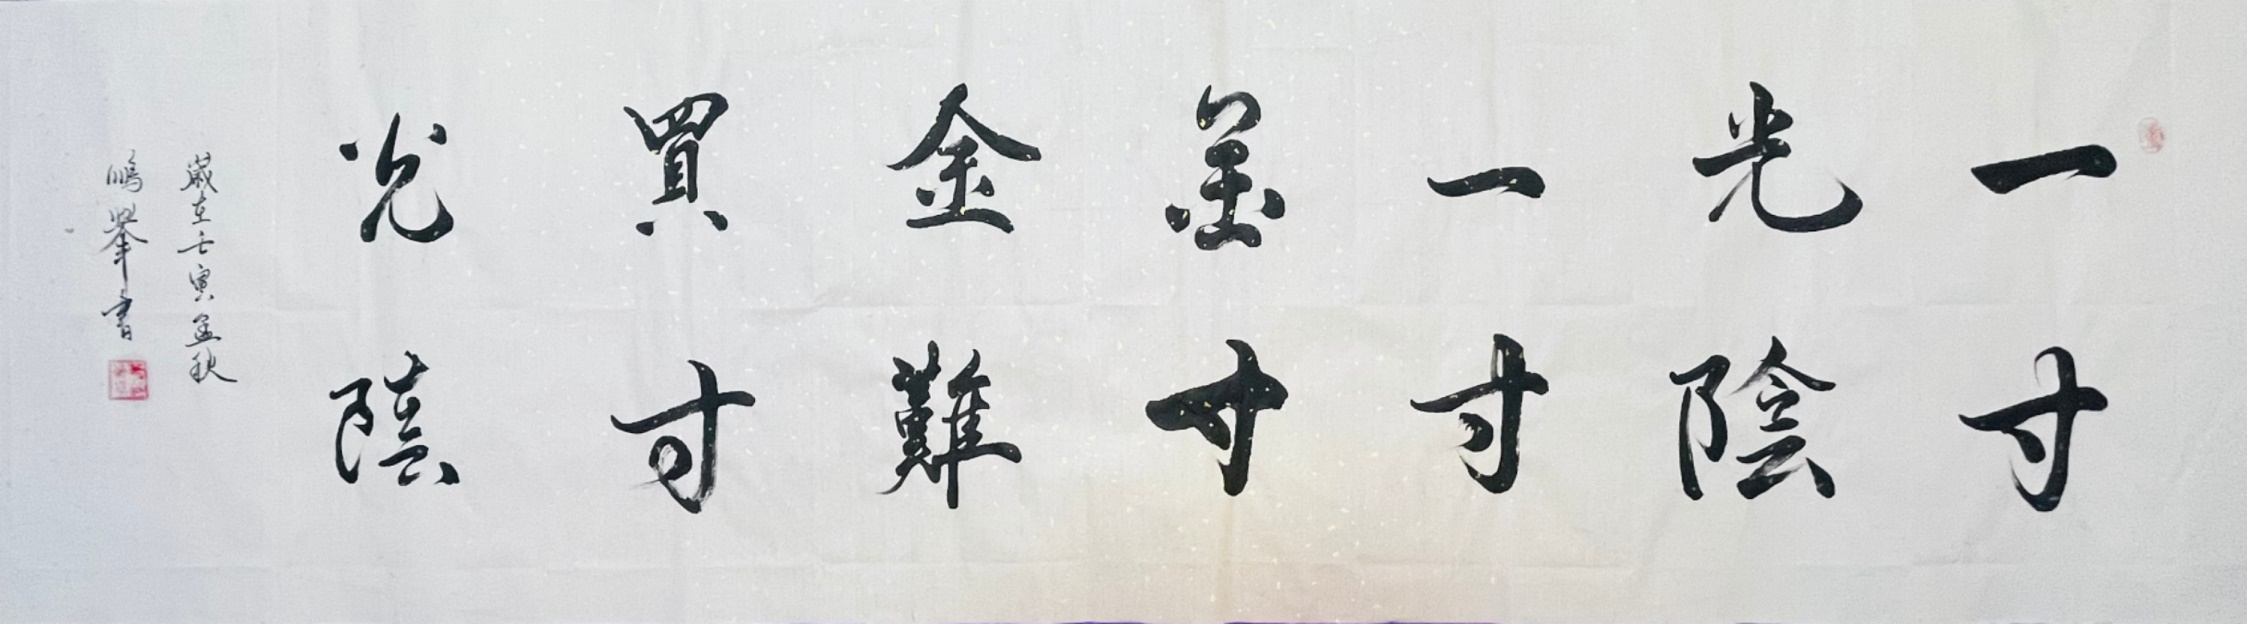 一寸
光陰
一寸
金寸
金難
買寸
光陰
歲在壬寅孟秋
鵬舉書